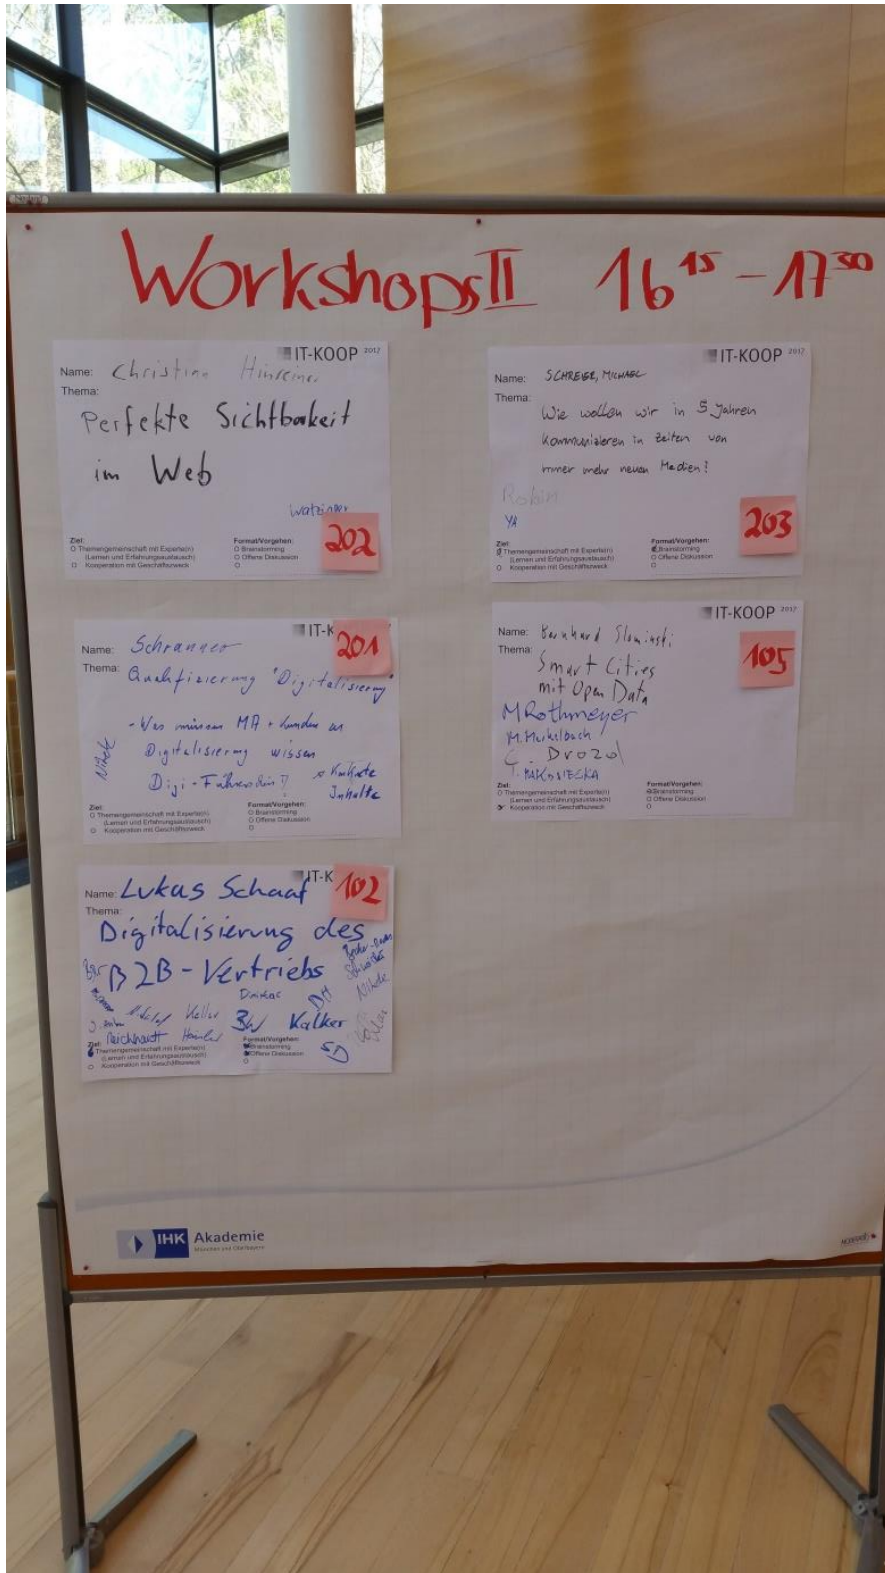 Workshops II 16 15 - 17 30
IT-KOOP 2017
Name: Christian
Thema:
Perfekte Sichtbarkeit
im Web
202
Ziel:
O Themengemeinschaft mit Experte(n)
(Lernen und Erfahrungsaustausch)
O Kooperation mit Geschäftszweck
Format/Vorgehen:
O Brainstorming
O Offene Diskussion
O
IT-KOOP 2017
Name: SCHREIER, MICHAEL
Thema:
Wie wollen wir in 5 Jahren
kommunizieren in Zeiten von
immer mehr neuen Medien?
Robin
YA
203
Ziel:
Themengemeinschaft mit Experte(n)
(Lernen und Erfahrungsaustausch)
O Kooperation mit Geschäftszweck
Format/Vorgehen:
Brainstorming
O Offene Diskussion
O
IT-K
201
Name: Schranner
Thema:
Qualifizierung "Digitalisierung"
- Was müssen MA + Kunden
Digitalisierung wissen
Digi-Führerschein?
Inhalte
Ziel:
O Themengemeinschaft mit Experte(n)
(Lernen und Erfahrungsaustausch)
O Kooperation mit Geschäftszweck
Format/Vorgehen:
O Brainstorming
O Offene Diskussion
O
IT-KOOP 2017
Name: Bernhard Slominski
Thema:
Smart Cities
mit Open Data
105
M Rothmeyer
Drozd
Ziel:
O Themengemeinschaft mit Experte(n)
(Lernen und Erfahrungsaustausch)
Kooperation mit Geschäftszweck
Format/Vorgehen:
Brainstorming
O Offene Diskussion
O
IT-K
102
Name: Lukas Schaaf
Thema:
Digitalisierung des
B2B-Vertriebs
Keller
BW Kalker
Reichhardt
SD
Ziel:
Themengemeinschaft mit Experte(n)
(Lernen und Erfahrungsaustausch)
O Kooperation mit Geschäftszweck
Format/Vorgehen:
Brainstorming
Offene Diskussion
O
IHK Akademie
München und Oberbayern